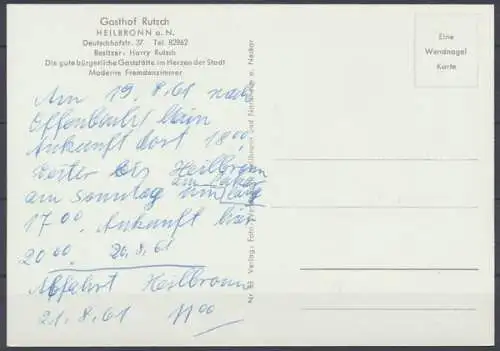 Gasthof Rutsch
HEILBRONN a. N.
Deutschhofstr. 37 Tel. 82962
Besitzer: Harry Rutsch
Die gute bürgerliche Gaststätte im Herzen der Stadt
Moderne Fremdenzimmer
Am 19.8.61 nach
Offenbach/ Main
Ankunft dort 18.00
weiter bis Heilbronn
am Sonntag um
17.00. Ankunft hier
20.00. 20.8.61
Abfahrt Heilbronn
21.8.61 11.00
Nr. 83 Verlag: Foto
Heilbronn und Nordheim a. Neckar
Eine
Wendnagel
Karte